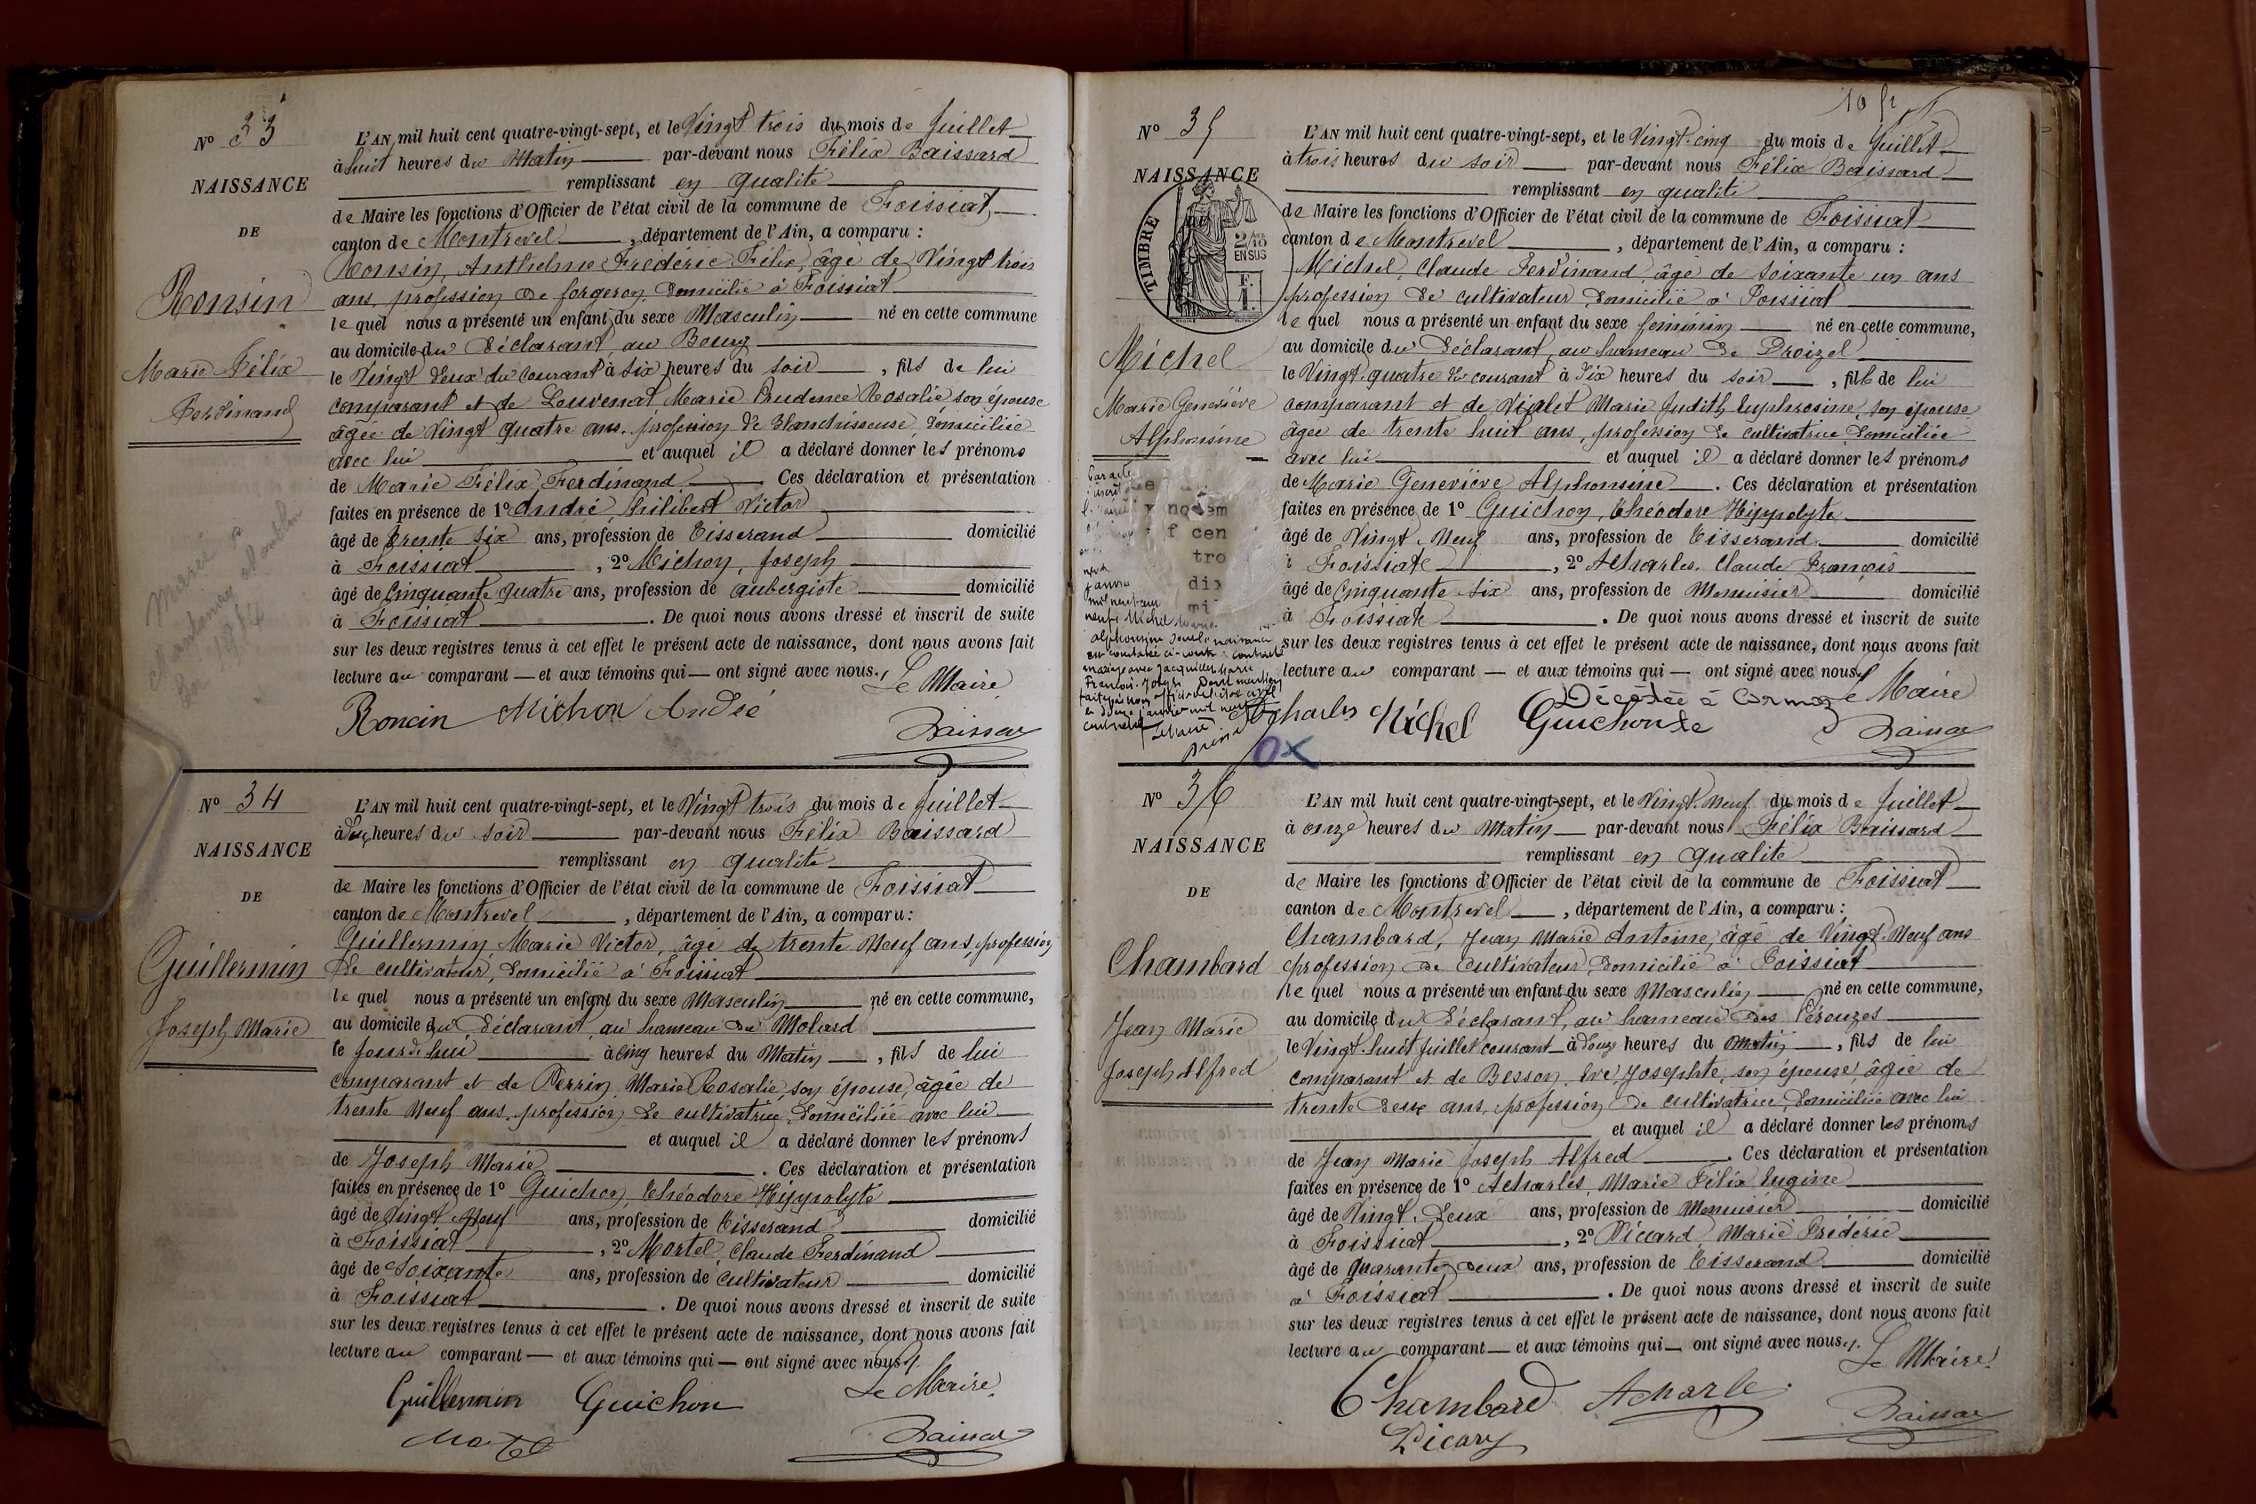 N° 33
NAISSANCE
DE
Ronsin
Marie Félix
Ferdinand
L'AN mil huit cent quatre-vingt-sept, et le Vingt trois du mois de Juillet
à huit heures du Matin par-devant nous Félix Baissard
remplissant en qualité
de Maire les fonctions d'Officier de l'état civil de la commune de Foissiat,
canton de Montrevel, département de l'Ain, a comparu :
Ronsin, Anthelme Frédéric Félix, âgé de Vingt trois
ans, profession de forgeron, domicilié à Foissiat
lequel nous a présenté un enfant du sexe Masculin né en cette commune
au domicile du déclarant, au Bourg
le Vingt deux du courant à six heures du soir, fils de lui
comparant et de Louvenat Marie Prudence Rosalie son épouse
âgée de Vingt quatre ans, profession de Blanchisseuse, domiciliée
avec lui et auquel il a déclaré donner les prénoms
de Marie Félix Ferdinand. Ces déclaration et présentation
faites en présence de 1° André, Philibert Victor
âgé de trente six ans, profession de Tisserand domicilié
à Foissiat, 2° Michon, Joseph
âgé de Cinquante quatre ans, profession de aubergiste domicilié
à Foissiat. De quoi nous avons dressé et inscrit de suite
sur les deux registres tenus à cet effet le présent acte de naissance, dont nous avons fait
lecture au comparant — et aux témoins qui — ont signé avec nous.
Le Maire
Roncin Michon André
Baissar
N° 34
NAISSANCE
DE
Guillermin
Joseph Marie
L'AN mil huit cent quatre-vingt-sept, et le Vingt trois du mois de Juillet
à heures du soir par-devant nous Félix Baissard
remplissant en qualité
de Maire les fonctions d'Officier de l'état civil de la commune de Foissiat
canton de Montrevel, département de l'Ain, a comparu :
Guillermin, Marie Victor, âgé de trente Neuf ans, profession
de cultivateur, domicilié à Foissiat
lequel nous a présenté un enfant du sexe Masculin né en cette commune,
au domicile du déclarant, au hameau du Molard
le jourd'hui à cinq heures du Matin, fils de lui
comparant et de Perrin, Marie Rosalie, son épouse, âgée de
trente Neuf ans, profession de cultivatrice, domiciliée avec lui
et auquel il a déclaré donner les prénoms
de Joseph Marie. Ces déclaration et présentation
faites en présence de 1° Guichon, Théodore Hippolyte
âgé de Vingt Neuf ans, profession de Tisserand domicilié
à Foissiat, 2° Mortel, Claude Ferdinand
âgé de Soixante ans, profession de cultivateur domicilié
à Foissiat. De quoi nous avons dressé et inscrit de suite
sur les deux registres tenus à cet effet le présent acte de naissance, dont nous avons fait
lecture au comparant — et aux témoins qui — ont signé avec nous.
Guillermin Guichon Le Maire
Baissar
N° 35
NAISSANCE
TIMBRE
2/10 EN SUS
Michel
Marie Geneviève
Alphonsine
L'AN mil huit cent quatre-vingt-sept, et le Vingt-cinq du mois de Juillet
à trois heures du soir par-devant nous Félix Baissard
remplissant en qualité
de Maire les fonctions d'Officier de l'état civil de la commune de Foissiat
canton de Montrevel, département de l'Ain, a comparu :
Michel, Claude Ferdinand, âgé de soixante un ans
profession de cultivateur, domicilié à Foissiat
lequel nous a présenté un enfant du sexe féminin né en cette commune,
au domicile du déclarant, au hameau de Broizel
le Vingt quatre du courant à six heures du soir, fille de lui
comparant et de Vialet Marie Judith Euphrosine, son épouse
âgée de trente huit ans, profession de cultivatrice, domiciliée
avec lui et auquel il a déclaré donner les prénoms
de Marie Geneviève Alphonsine. Ces déclaration et présentation
faites en présence de 1° Guichon, Théodore Hippolyte
âgé de Vingt Neuf ans, profession de Tisserand domicilié
à Foissiat, 2° Acharles, Claude François
âgé de Cinquante six ans, profession de Menuisier domicilié
à Foissiat. De quoi nous avons dressé et inscrit de suite
sur les deux registres tenus à cet effet le présent acte de naissance, dont nous avons fait
lecture au comparant — et aux témoins qui — ont signé avec nous.
Décédée à Cormoz
Le Maire
Acharles Michel Guichon
Baissar
N° 36
NAISSANCE
DE
Chambard
Jean Marie
Joseph Alfred
L'AN mil huit cent quatre-vingt-sept, et le Vingt-Neuf du mois de Juillet
à onze heures du Matin par-devant nous Félix Baissard
remplissant en qualité
de Maire les fonctions d'Officier de l'état civil de la commune de Foissiat
canton de Montrevel, département de l'Ain, a comparu :
Chambard, Jean Marie Antoine, âgé de Vingt-Neuf ans
profession de cultivateur, domicilié à Foissiat
lequel nous a présenté un enfant du sexe Masculin né en cette commune,
au domicile du déclarant, au hameau des Pérouzes
le Vingt-huit Juillet courant à douze heures du Matin, fils de lui
comparant et de Besson, Eve Josephte, son épouse, âgée de
trente deux ans, profession de cultivatrice, domiciliée avec lui
et auquel il a déclaré donner les prénoms
de Jean Marie Joseph Alfred. Ces déclaration et présentation
faites en présence de 1° Acharles, Marie Félix Eugène
âgé de Vingt Deux ans, profession de Menuisier domicilié
à Foissiat, 2° Piccard, Marie Frédéric
âgé de quarante Deux ans, profession de Tisserand domicilié
à Foissiat. De quoi nous avons dressé et inscrit de suite
sur les deux registres tenus à cet effet le présent acte de naissance, dont nous avons fait
lecture au comparant — et aux témoins qui — ont signé avec nous.
Le Maire
Chambard Acharle
Picary
Baissar